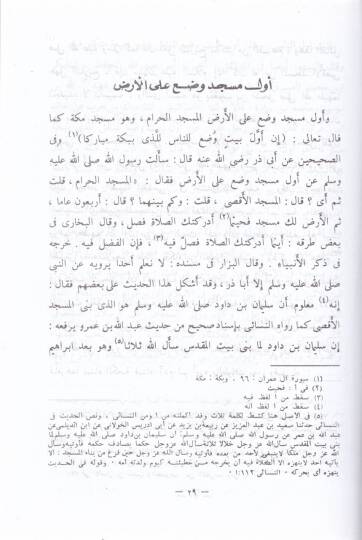 أول مسجد وضع على الأرض
وأول مسجد وضع على الأرض المسجد الحرام، وهو مسجد مكة كما
قال تعالى : (إن أوّل بيت وُضع للناس للّذى ببكة مباركا)(١) وفى
الصحيحين عن أبى ذر رضى الله عنه قال : سألت رسول الله صلى الله عليه
وسلم عن أول مسجد وضع على الأرض فقال : «المسجد الحرام، قلت
ثم أى ؟ قال : المسجد الأقصى ، قلت : وكم بينهما ؟ قال : أربعون عاما ،
ثم الأرض لك مسجد فحيثما(٢) أدركتك الصلاة فصل، وقال البخارى فى
بعض طرقه : أينما أدركتك الصلاة فصلّ فيه(٣)، فإن الفضل فيه . خرجه
فى ذكر الأنبياء . وقال البزار فى مسنده : لا نعلم أحدا يرويه عن النبى
صلى الله عليه وسلم إلا أبا ذر، وقد أشكل هذا الحديث على بعضهم فقال :
إنه(٤) معلوم أن سليمان بن داود صلى الله عليه وسلم هو الذى بنى المسجد
الأقصى كما رواه النسائى بإسناد صحيح من حديث عبد الله بن عمرو يرفعه :
إن سليمان بن داود لما بنى بيت المقدس سأل الله ثلاثا(٥) وهو بعد ابراهيم
(١) سورة آل عمران : ٩٦ . وبكة : مكة
(٢) فى أ : فحيث
(٣) سقط من أ لفظ فيه
(٤) سقط من أ لفظ انه
(٥) فى الأصل هنا كشط لكلمة ثلاث وقد أكملته من أ ومن النسائى ، ونص الحديث فى
النسائى حدثنا سعيد بن عبد العزيز عن ربيعة بن يزيد عن أبى ادريس الخولانى عن ابن الديلمى عن
عبد الله بن عمر عن رسول الله صلى الله عليه وسلم، أن سليمان بن داود صلى الله عليه وسلم لما
بنى بيت المقدس سأل الله عز وجل خلالا ثلاثة سأل الله عز وجل حكما يصادف حكمه فأوتيه وسأل
الله عز وجل ملكا لا ينبغى لأحد من بعده فأوتيه وسأل الله عز وجل حين فرغ من بناء المسجد : ألا
يأتيه أحد لا ينهزه الا الصلاة فيه أن يخرجه من خطيئته كيوم ولدته أمه . وقوله فى الحديث
ينهزه أى يحركه . النسائى ١١٢:١
— ٢٩ —